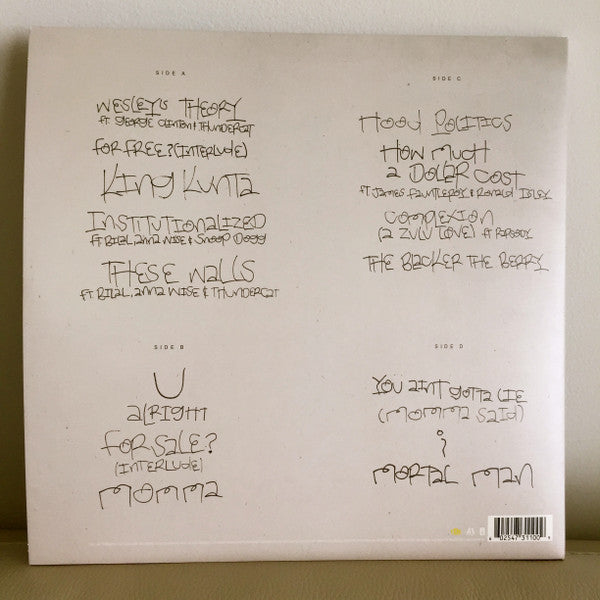 SIDE A
WESLEY'S THEORY
ft GEORGE CLINTON & THUNDERCAT
FOR FREE? (INTERLUDE)
KING KUNTA
INSTITUTIONALIZED
ft BILAL, anna WISE & SNOOP DOGG
THESE WALLS
ft BILAL, anna WISE & THUNDERCAT
SIDE B
U
ALRIGHT
FOR SALE?
(INTERLUDE)
MOMMA
SIDE C
HOOD POLITICS
HOW MUCH
a DOLLAR COST
ft JAMES FAUNTLEROY & RONALD ISLEY
COMPLEXION
(a ZULU LOVE) ft RAPSODY
THE BLACKER THE BERRY
SIDE D
YOU AINT GOTTA LIE
(MOMMA SAID)
i
MORTAL MAN
6 02547 31100 9